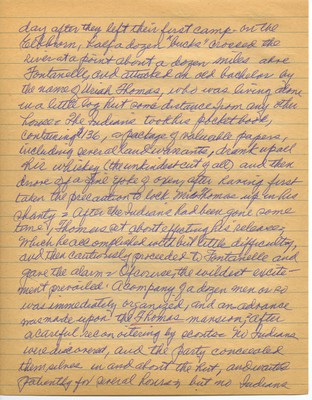 day after they left their first camp on the
Elkhorn, half a dozen "bucks" crossed the
river at a point about a dozen miles above
Fontanelle, and attacked an old bachelor by
the name of Uriah Thomas, who was living alone
in a little log hut some distance from any other
house = The Indians took his pocket book,
containing $136, a package of valuable papers,
including several land warrants, drank up all
his whiskey (the unkindest cut of all) and then
drove off a fine yoke of oxen, after having first
taken the precaution to lock Mr Thomas up in his
shanty = After the Indians had been gone some
time, Thomas set about effecting his release,
which he accomplished with but little difficulty,
and then cautiously proceeded to Fontanelle and
gave the alarm = Of course, the wildest excite-
ment prevailed = A company of a dozen men or so
was immediately organized, and an advance
was made upon the Thomas mansion = After
a careful reconoitering by scouts = no Indians
were discovered, and the party concealed
themselves in and about the hut, and waited
patiently for several hours, but no Indians